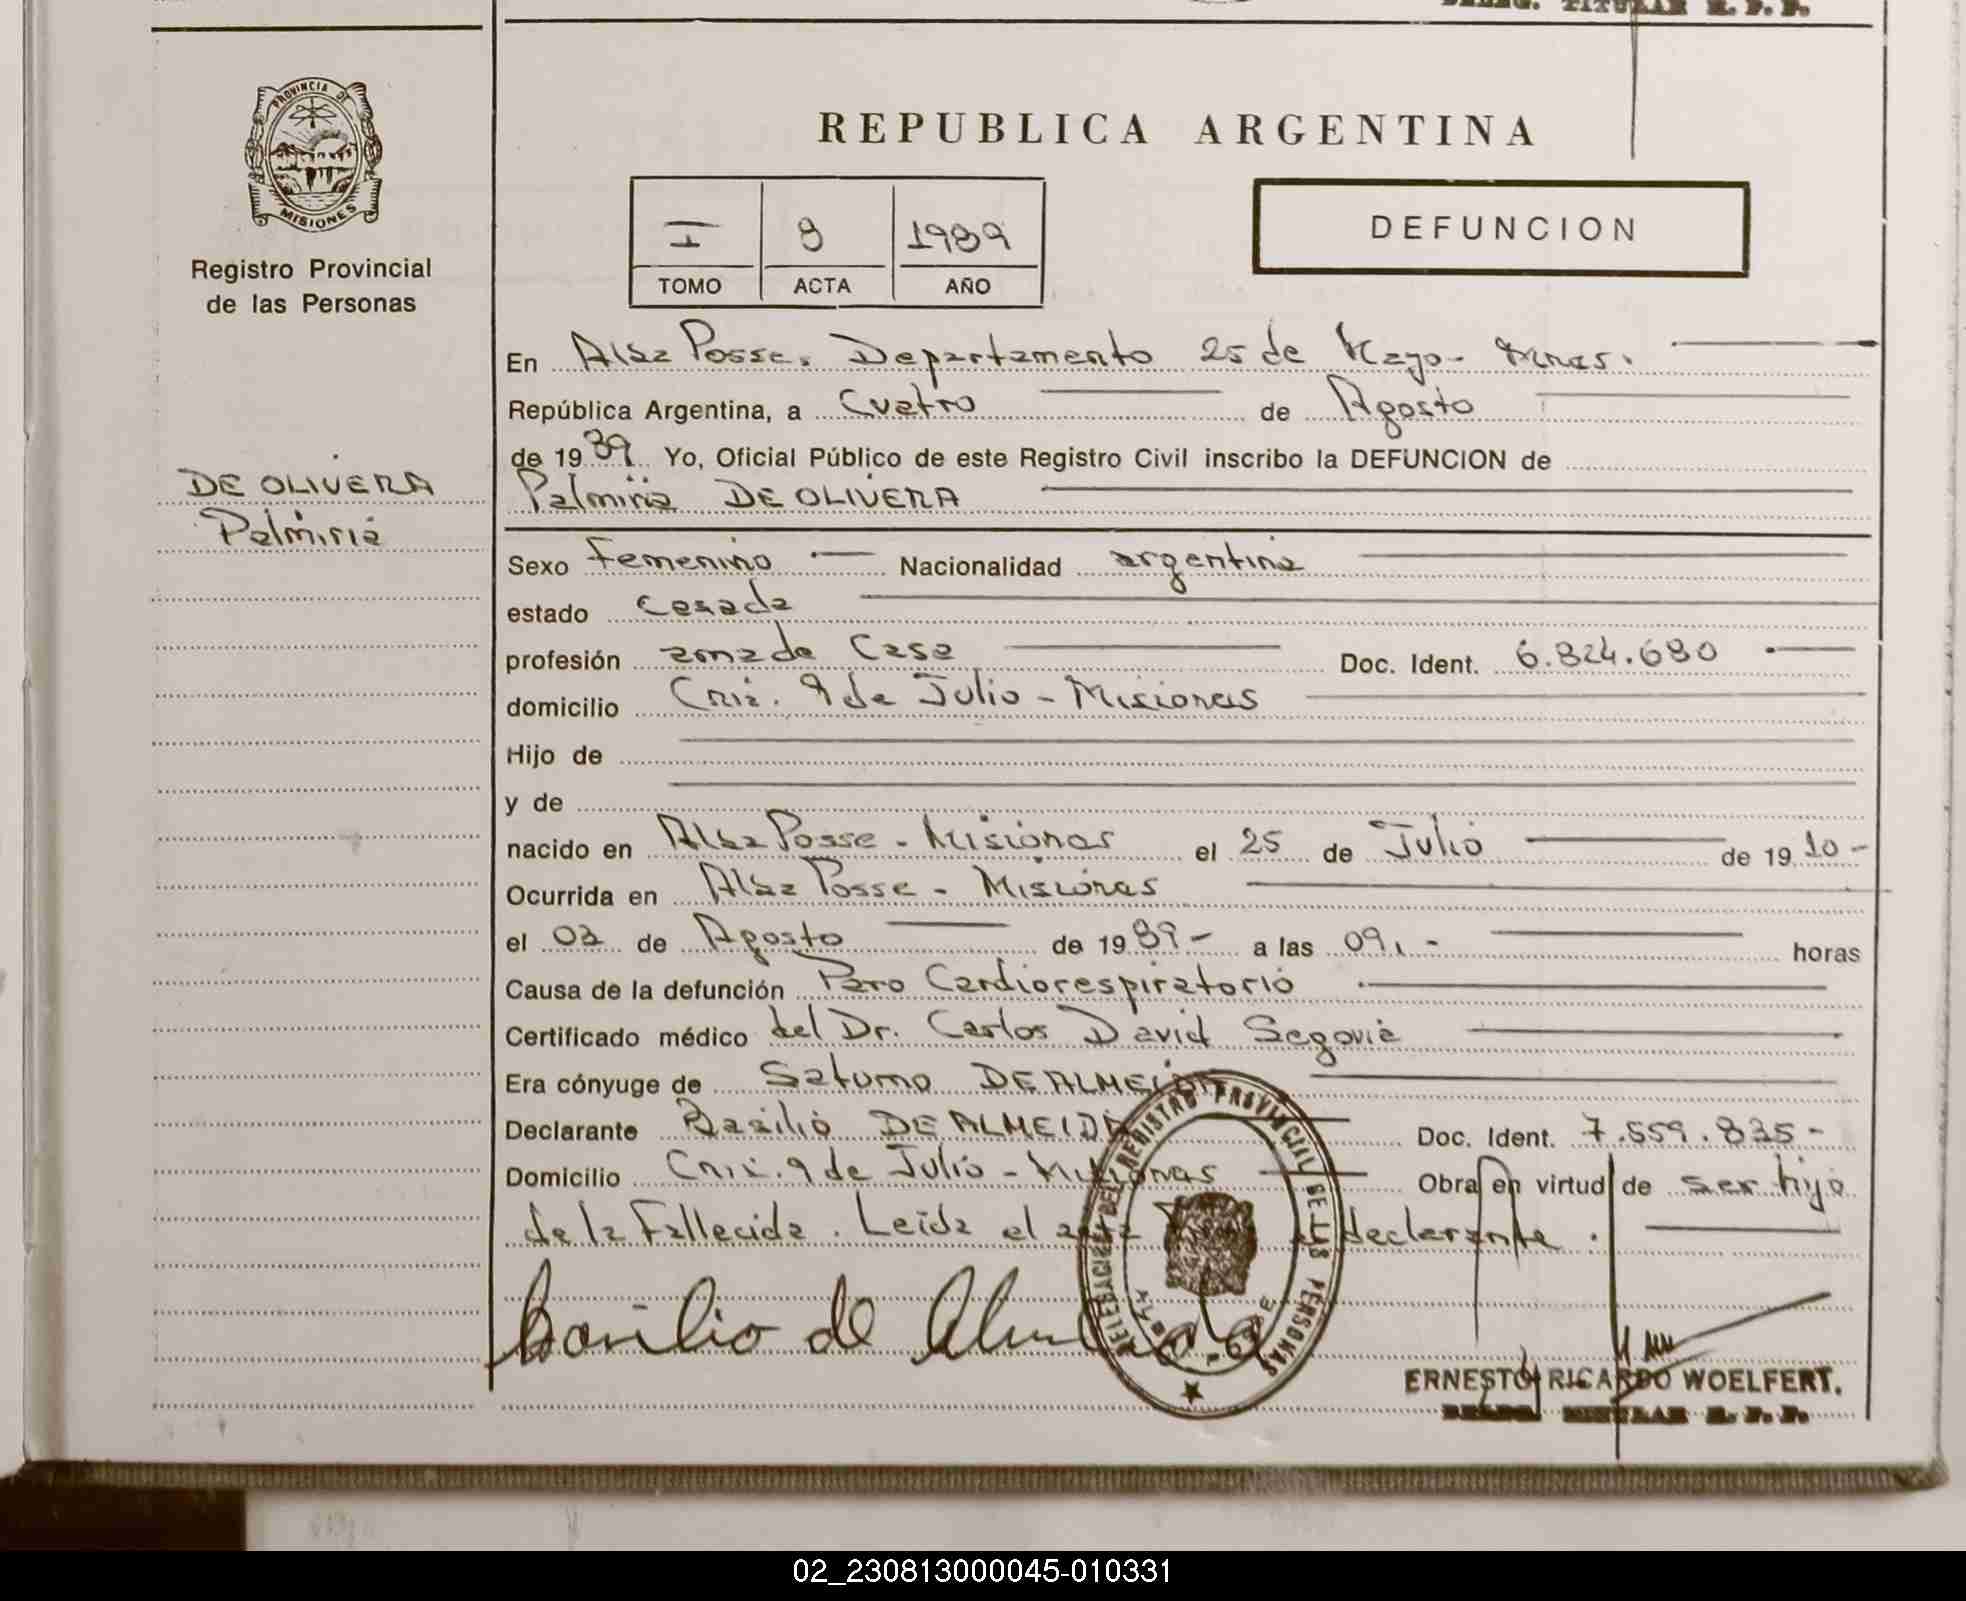 PROVINCIA DE
MISIONES
Registro Provincial
de las Personas
REPUBLICA ARGENTINA
I 8 1989
TOMO ACTA AÑO
DEFUNCION
En Alba Posse. Departamento 25 de Mayo - Mnes.
República Argentina, a Cuatro de Agosto
de 1989 Yo, Oficial Público de este Registro Civil inscribo la DEFUNCION de
Palmiria DE OLIVERA
DE OLIVERA
Palmiria
Sexo Femenino Nacionalidad argentina
estado Casada
profesión ama de Casa Doc. Ident. 6.824.680
domicilio Cnia. 9 de Julio - Misiones
Hijo de
y de
nacido en Alba Posse - Misiones el 25 de Julio de 1910 -
Ocurrida en Alba Posse - Misiones
el 03 de Agosto de 1989 - a las 09, - horas
Causa de la defunción Paro Cardiorespiratorio
Certificado médico del Dr. Carlos David Segovia
Era cónyuge de Saturno DE ALMEIDA
Declarante Basilio DE ALMEIDA Doc. Ident. 7.559.835 -
Domicilio Cnia. 9 de Julio - Misiones Obra en virtud de ser hijo
de la Fallecida. Leída el acta declarante.
Basilio de Almeida
REGISTRO PROVINCIAL DE LAS PERSONAS
ERNESTO RICARDO WOELFERT.
TITULAR R. P. P.
02_230813000045-010331